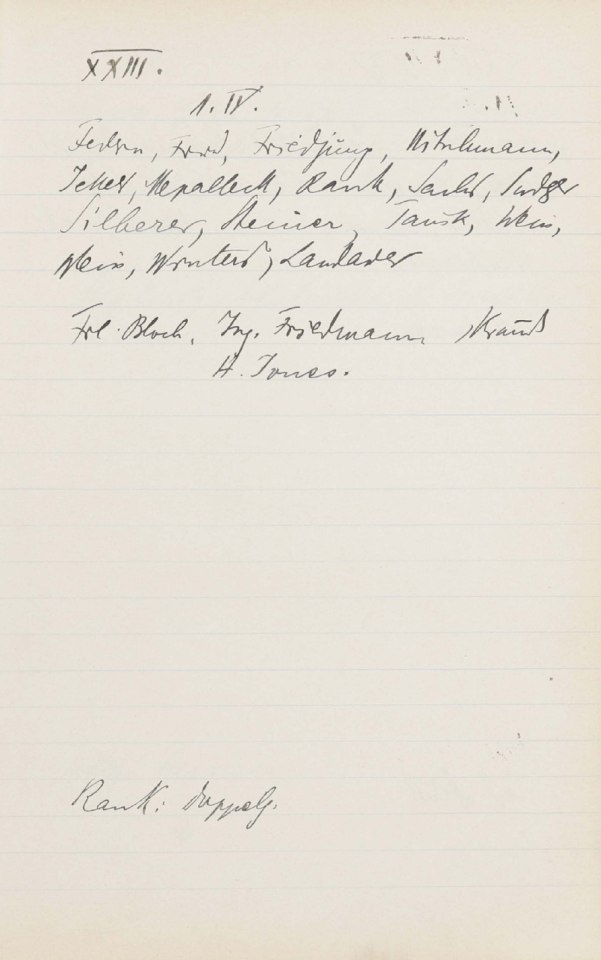 XXIII.
1. IV.
Federn, Freud, Friedjung, Hitschmann,
Jekels, Nepalleck, Rank, Sachs, Sadger
Silberer, Steiner, Tausk, Weiss,
Weiss, Winterst, Landauer
Frl. Bloch, Ing. Friedmann, Krauß
H. Jones.
Rank: Doppelg.